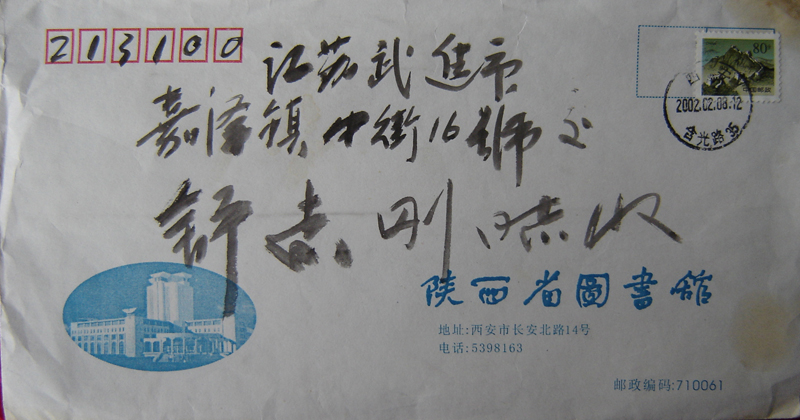 213100
80分
江苏武进市
嘉泽镇中街16號
2002.02.08.12
含光路
舒志刚 收
陕西省圖書館
地址:西安市长安北路14号
电话:5398163
邮政编码:710061